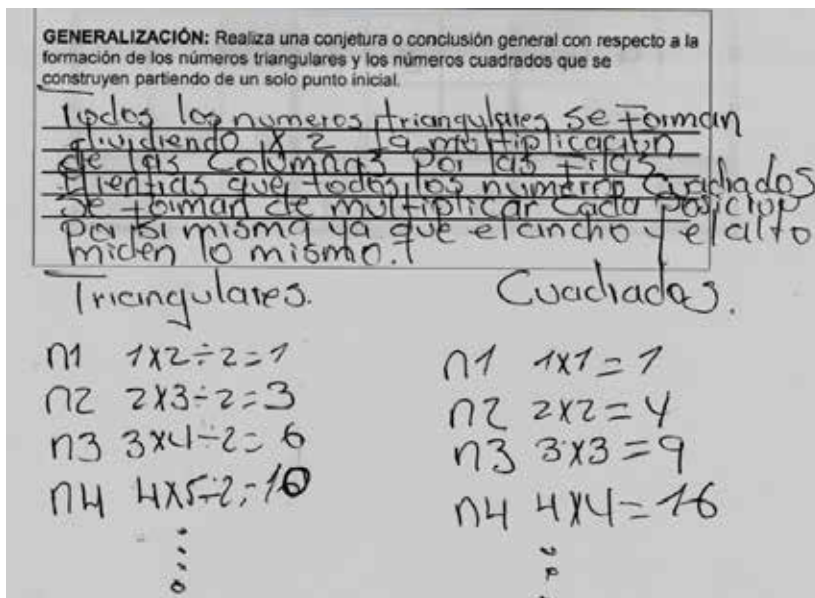 GENERALIZACIÓN: Realiza una conjetura o conclusión general con respecto a la
formación de los números triangulares y los números cuadrados que se
construyen partiendo de un solo punto inicial.
Todos los numeros triangulares se forman
dividiendo x 2 la multiplicacion
de las columnas por las filas
Mientras que todos los numeros cuadrados
se forman de multiplicar cada posicion
por si misma ya que el ancho y el alto
miden lo mismo.
Triangulares. Cuadrados.
n1 1x2÷2=1 n1 1x1=1
n2 2x3÷2=3 n2 2x2=4
n3 3x4÷2=6 n3 3x3=9
n4 4x5÷2=10 n4 4x4=16